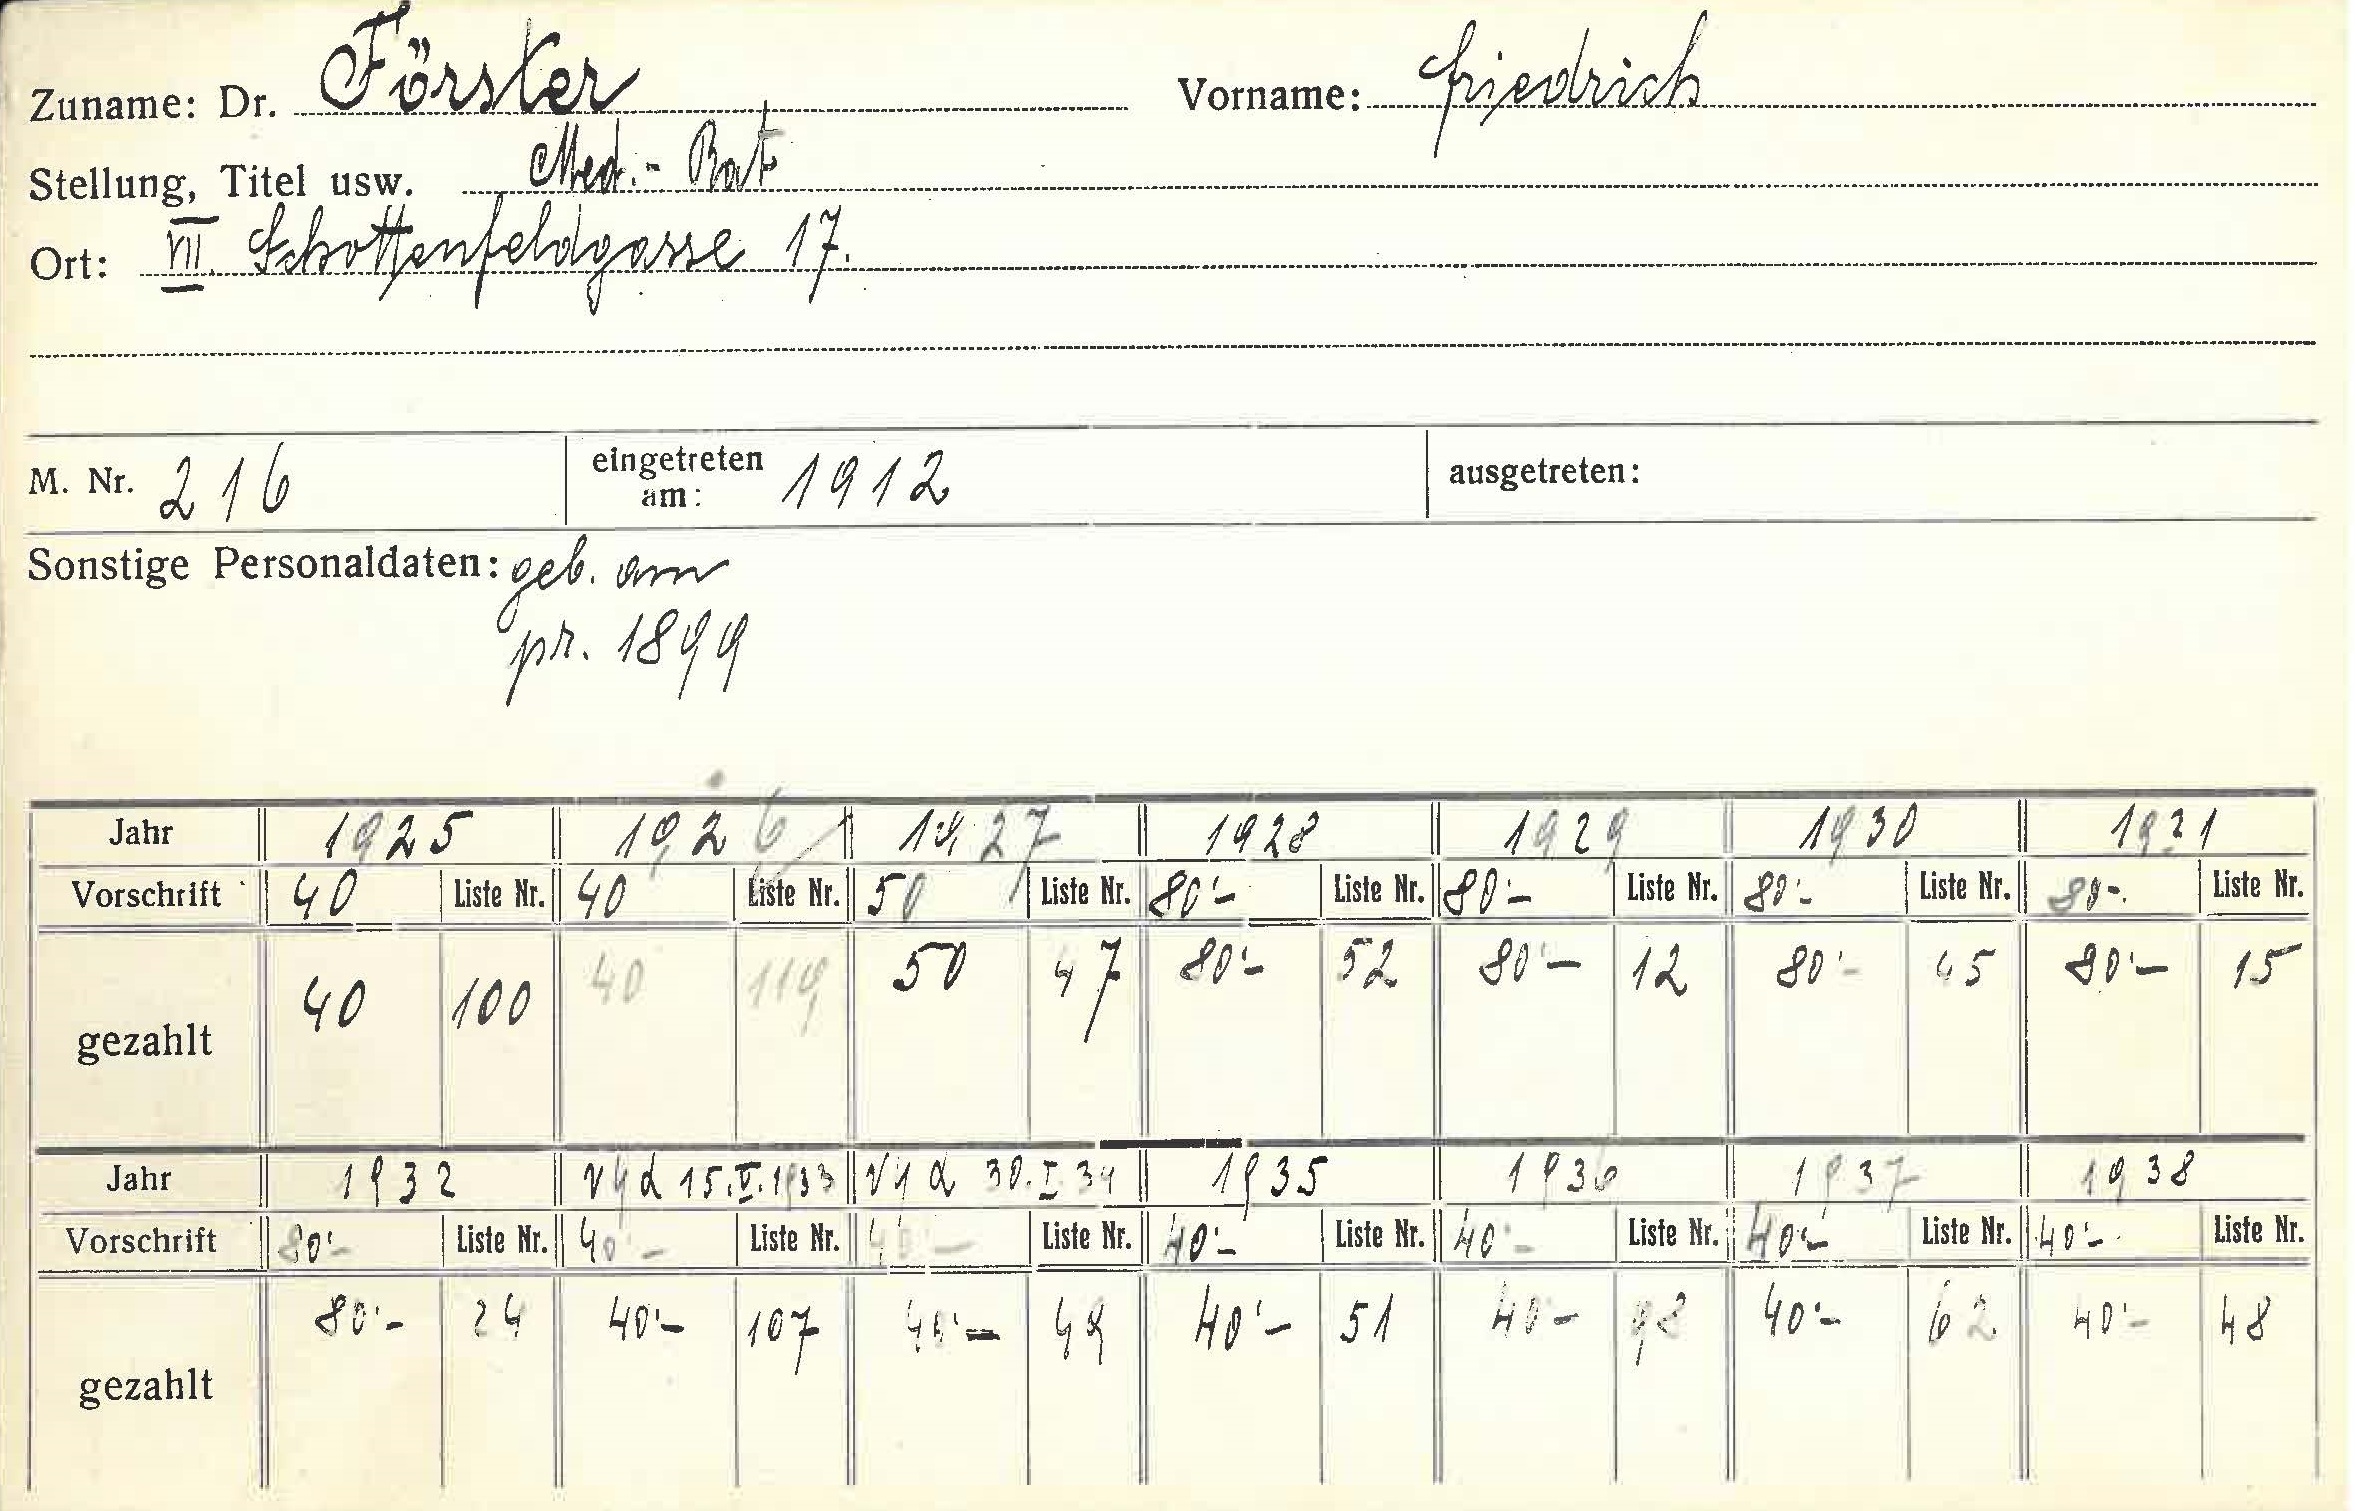 Zuname: Dr. Förster Vorname: Friedrich
Stellung, Titel usw. Med.-Rat
Ort: VII. Schottenfeldgasse 17.
M. Nr. 216 eingetreten am: 1912 ausgetreten:
Sonstige Personaldaten: geb. am
pr. 1899
Jahr 1925 1926 1927 1928 1929 1930 1931
Vorschrift 40 Liste Nr. 40 Liste Nr. 50 Liste Nr. 80'- Liste Nr. 80'- Liste Nr. 80'- Liste Nr. 80-. Liste Nr.
gezahlt 40 100 40 119 50 47 80'- 52 80'- 12 80'- 45 80'- 15
Jahr 1932 15.V.1933 30.I.34 1935 1936 1937 1938
Vorschrift 80'- Liste Nr. 40'- Liste Nr. 40'- Liste Nr. 40'- Liste Nr. 40'- Liste Nr. 40'- Liste Nr. 40'- Liste Nr.
gezahlt 80'- 24 40'- 107 40'- 49 40'- 51 40'- 98 40'- 62 40'- 48